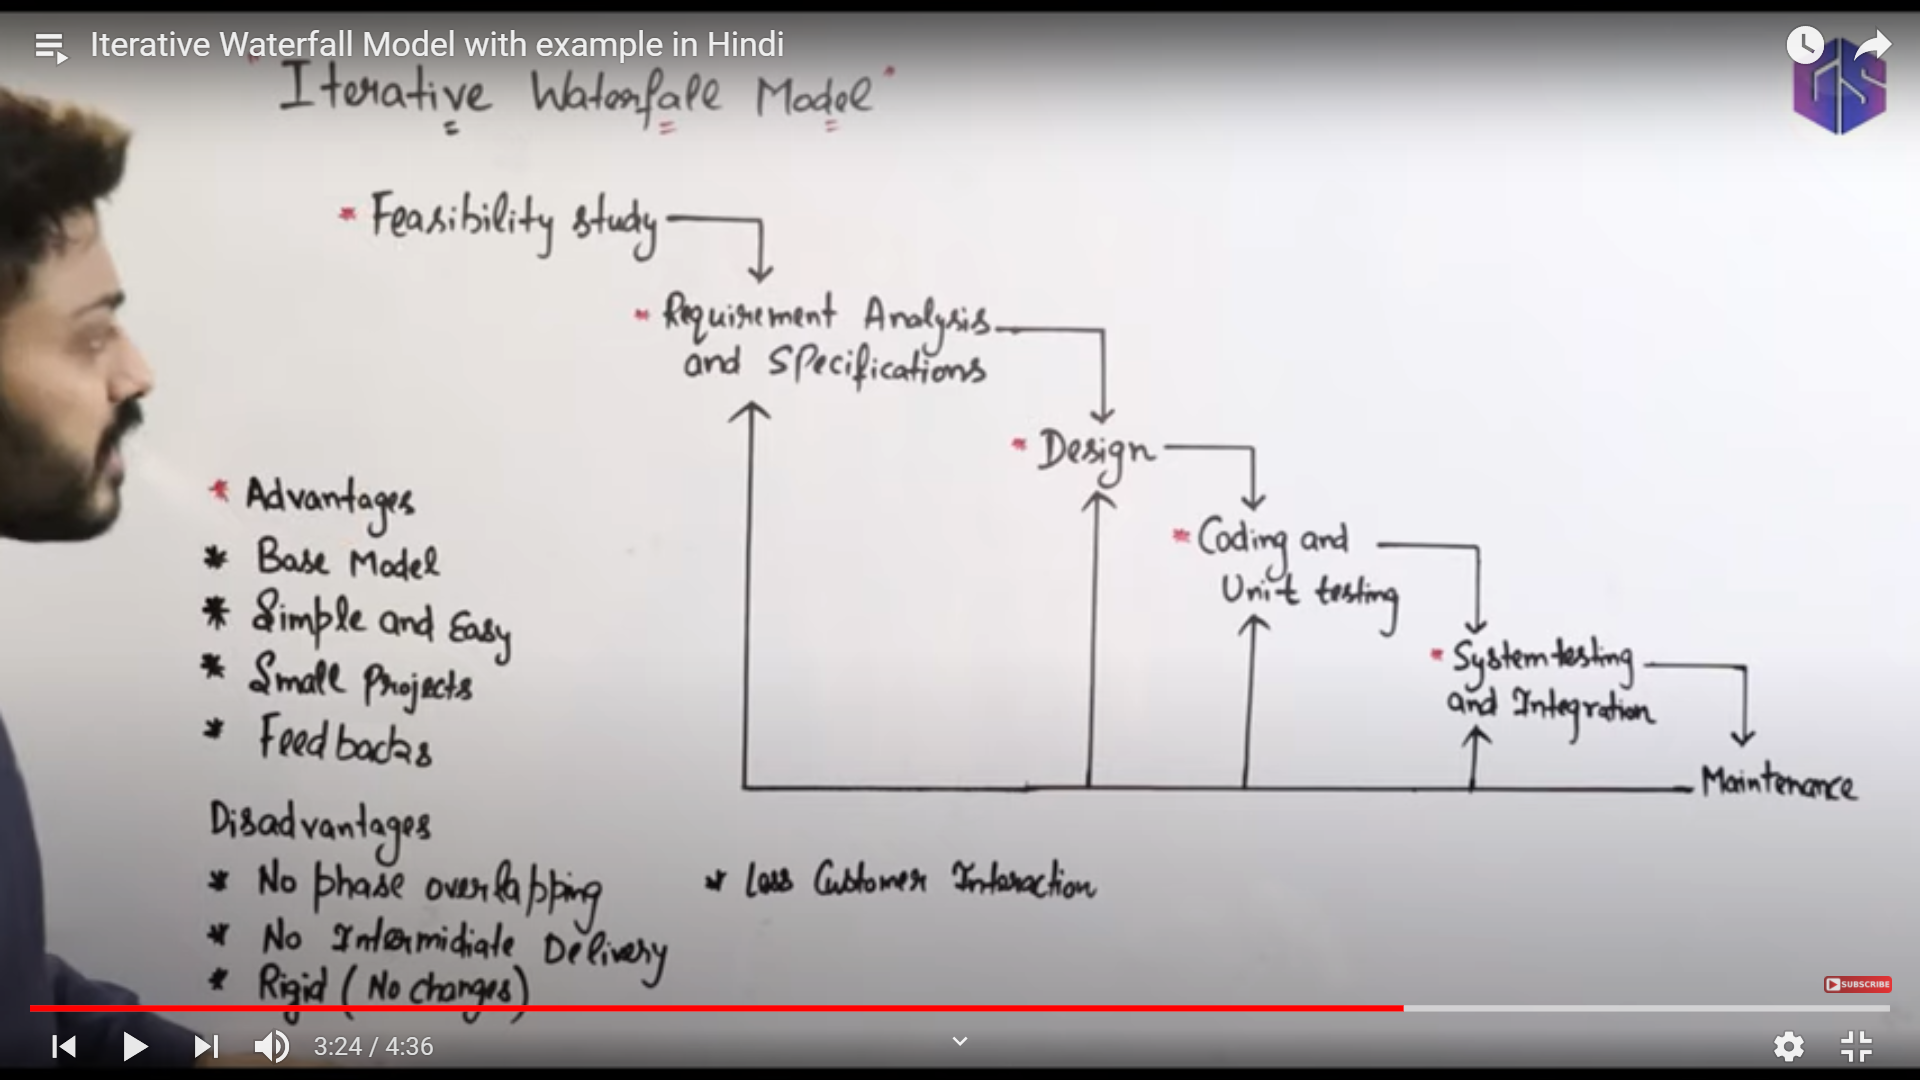 Iterative Waterfall Model with example in Hindi
GS
"Iterative Waterfall Model"
* Feasibility study
* Requirement Analysis
and Specifications
* Design
* Coding and
Unit testing
* System testing
and Integration
Maintenance
* Advantages
* Base Model
* Simple and Easy
* Small Projects
* Feedbacks
Disadvantages
* No phase overlapping
* No Intermidiate Delivery
* Rigid (No changes)
* Less Customer Interaction
SUBSCRIBE
3:24 / 4:36